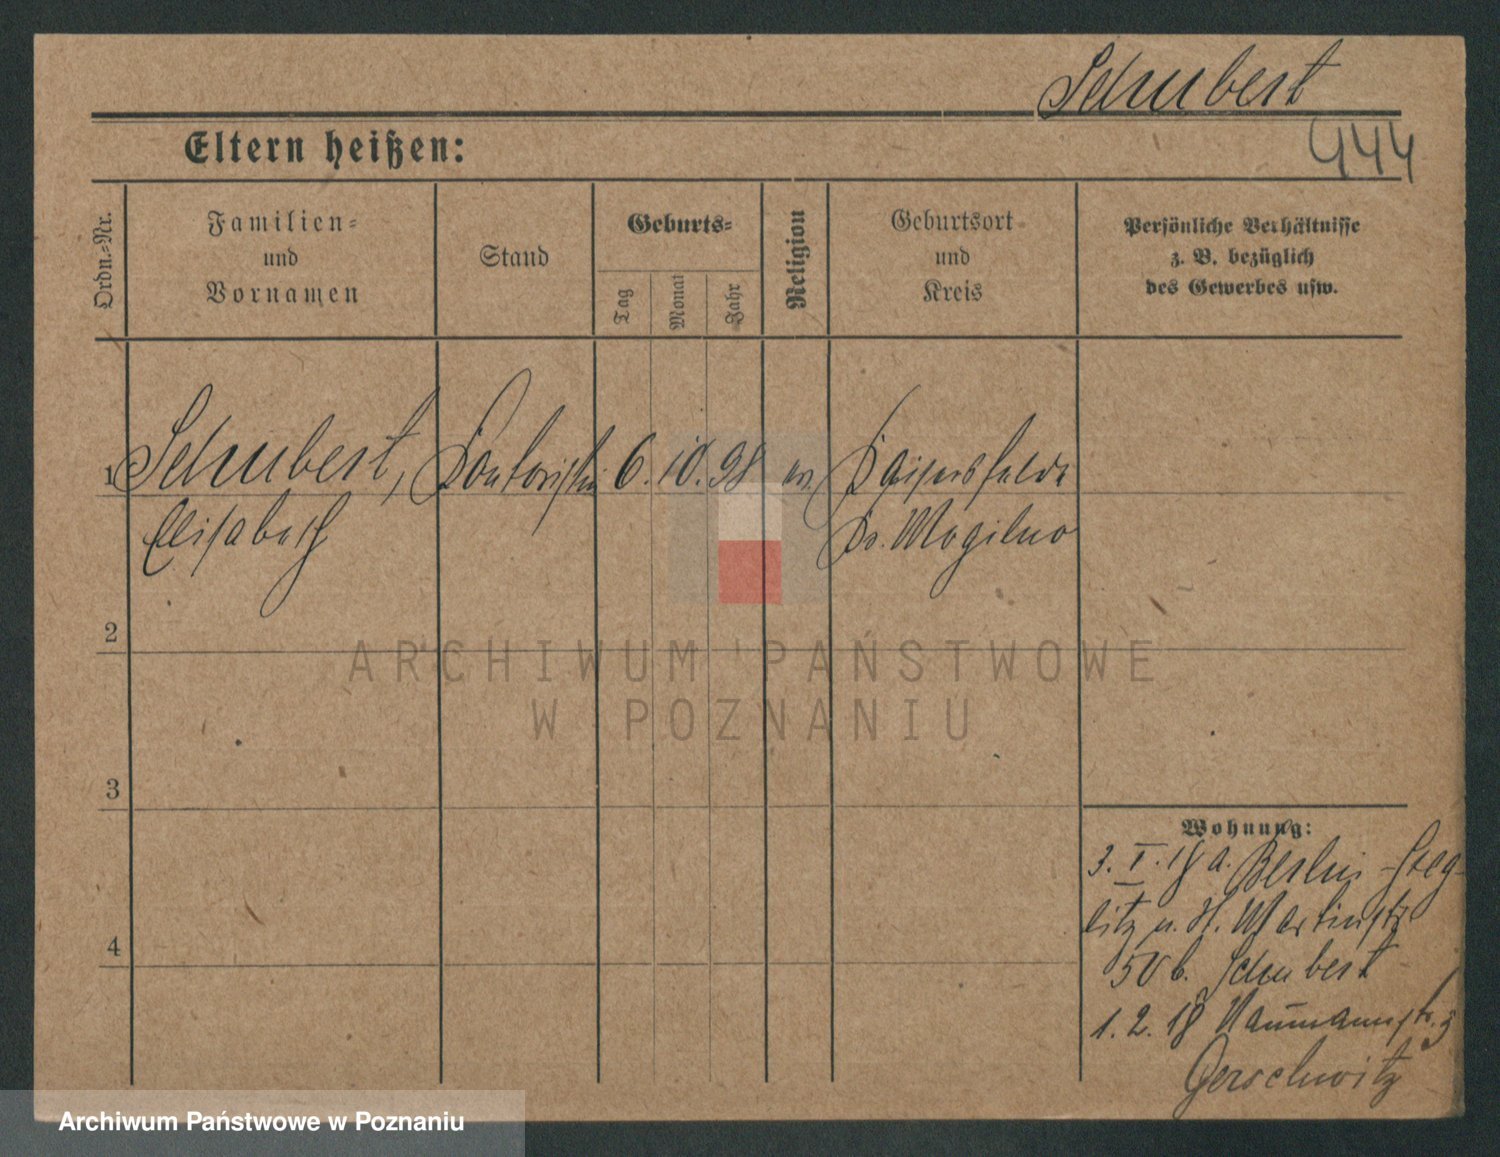 Schubert
444
Eltern heißen:
Ordn.-Nr.
Familien-
und
Vornamen
Stand
Geburts-
Tag
Monat
Jahr
Religion
Geburtsort
und
Kreis
Persönliche Verhältnisse
z. B. bezüglich
des Gewerbes usw.
1 Schubert, Kontoristin 6. 10. 98 ev. Kaisersfelde
Elisabeth Kr. Mogilno
2
3
4
ARCHIWUM PAŃSTWOWE
W POZNANIU
Wohnung:
3. I. 18 a. Berlin - Steg-
litz n. St. Martinstr
50 b. Schubert
1. 2. 18 Naumannstr.
Gerschwitz
Archiwum Państwowe w Poznaniu